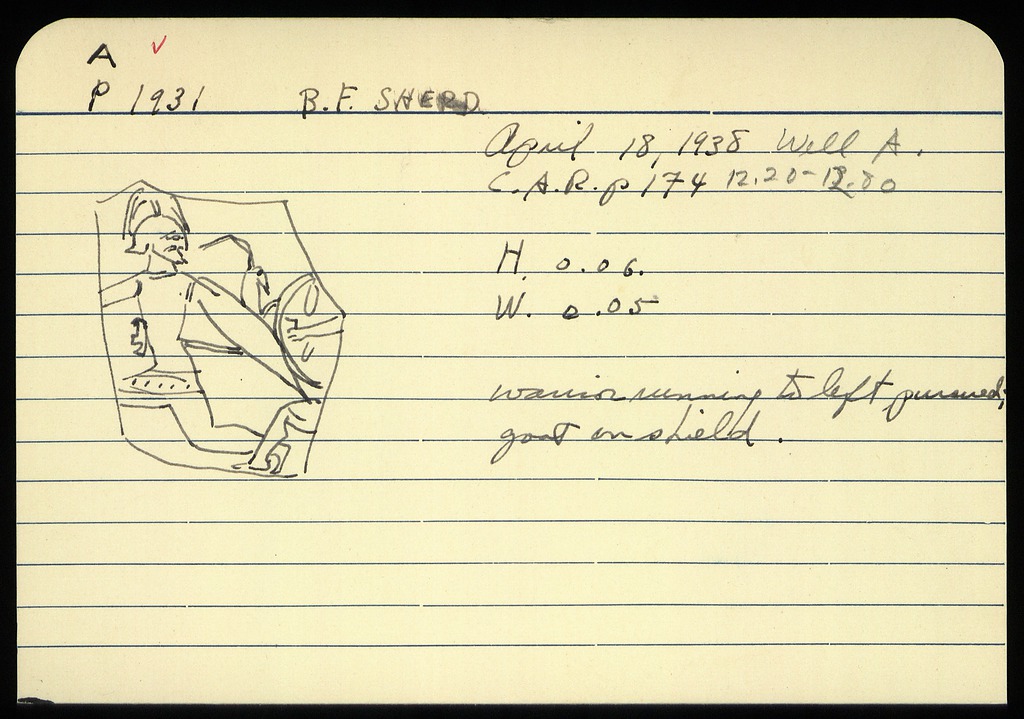 A ✓
P 1931 B.F. SHERD
April 18, 1938 Well A.
C.A.R. p 174 12.20-12.80
H. 0.06.
W. 0.05
warrior running to left, pursued;
goat on shield.